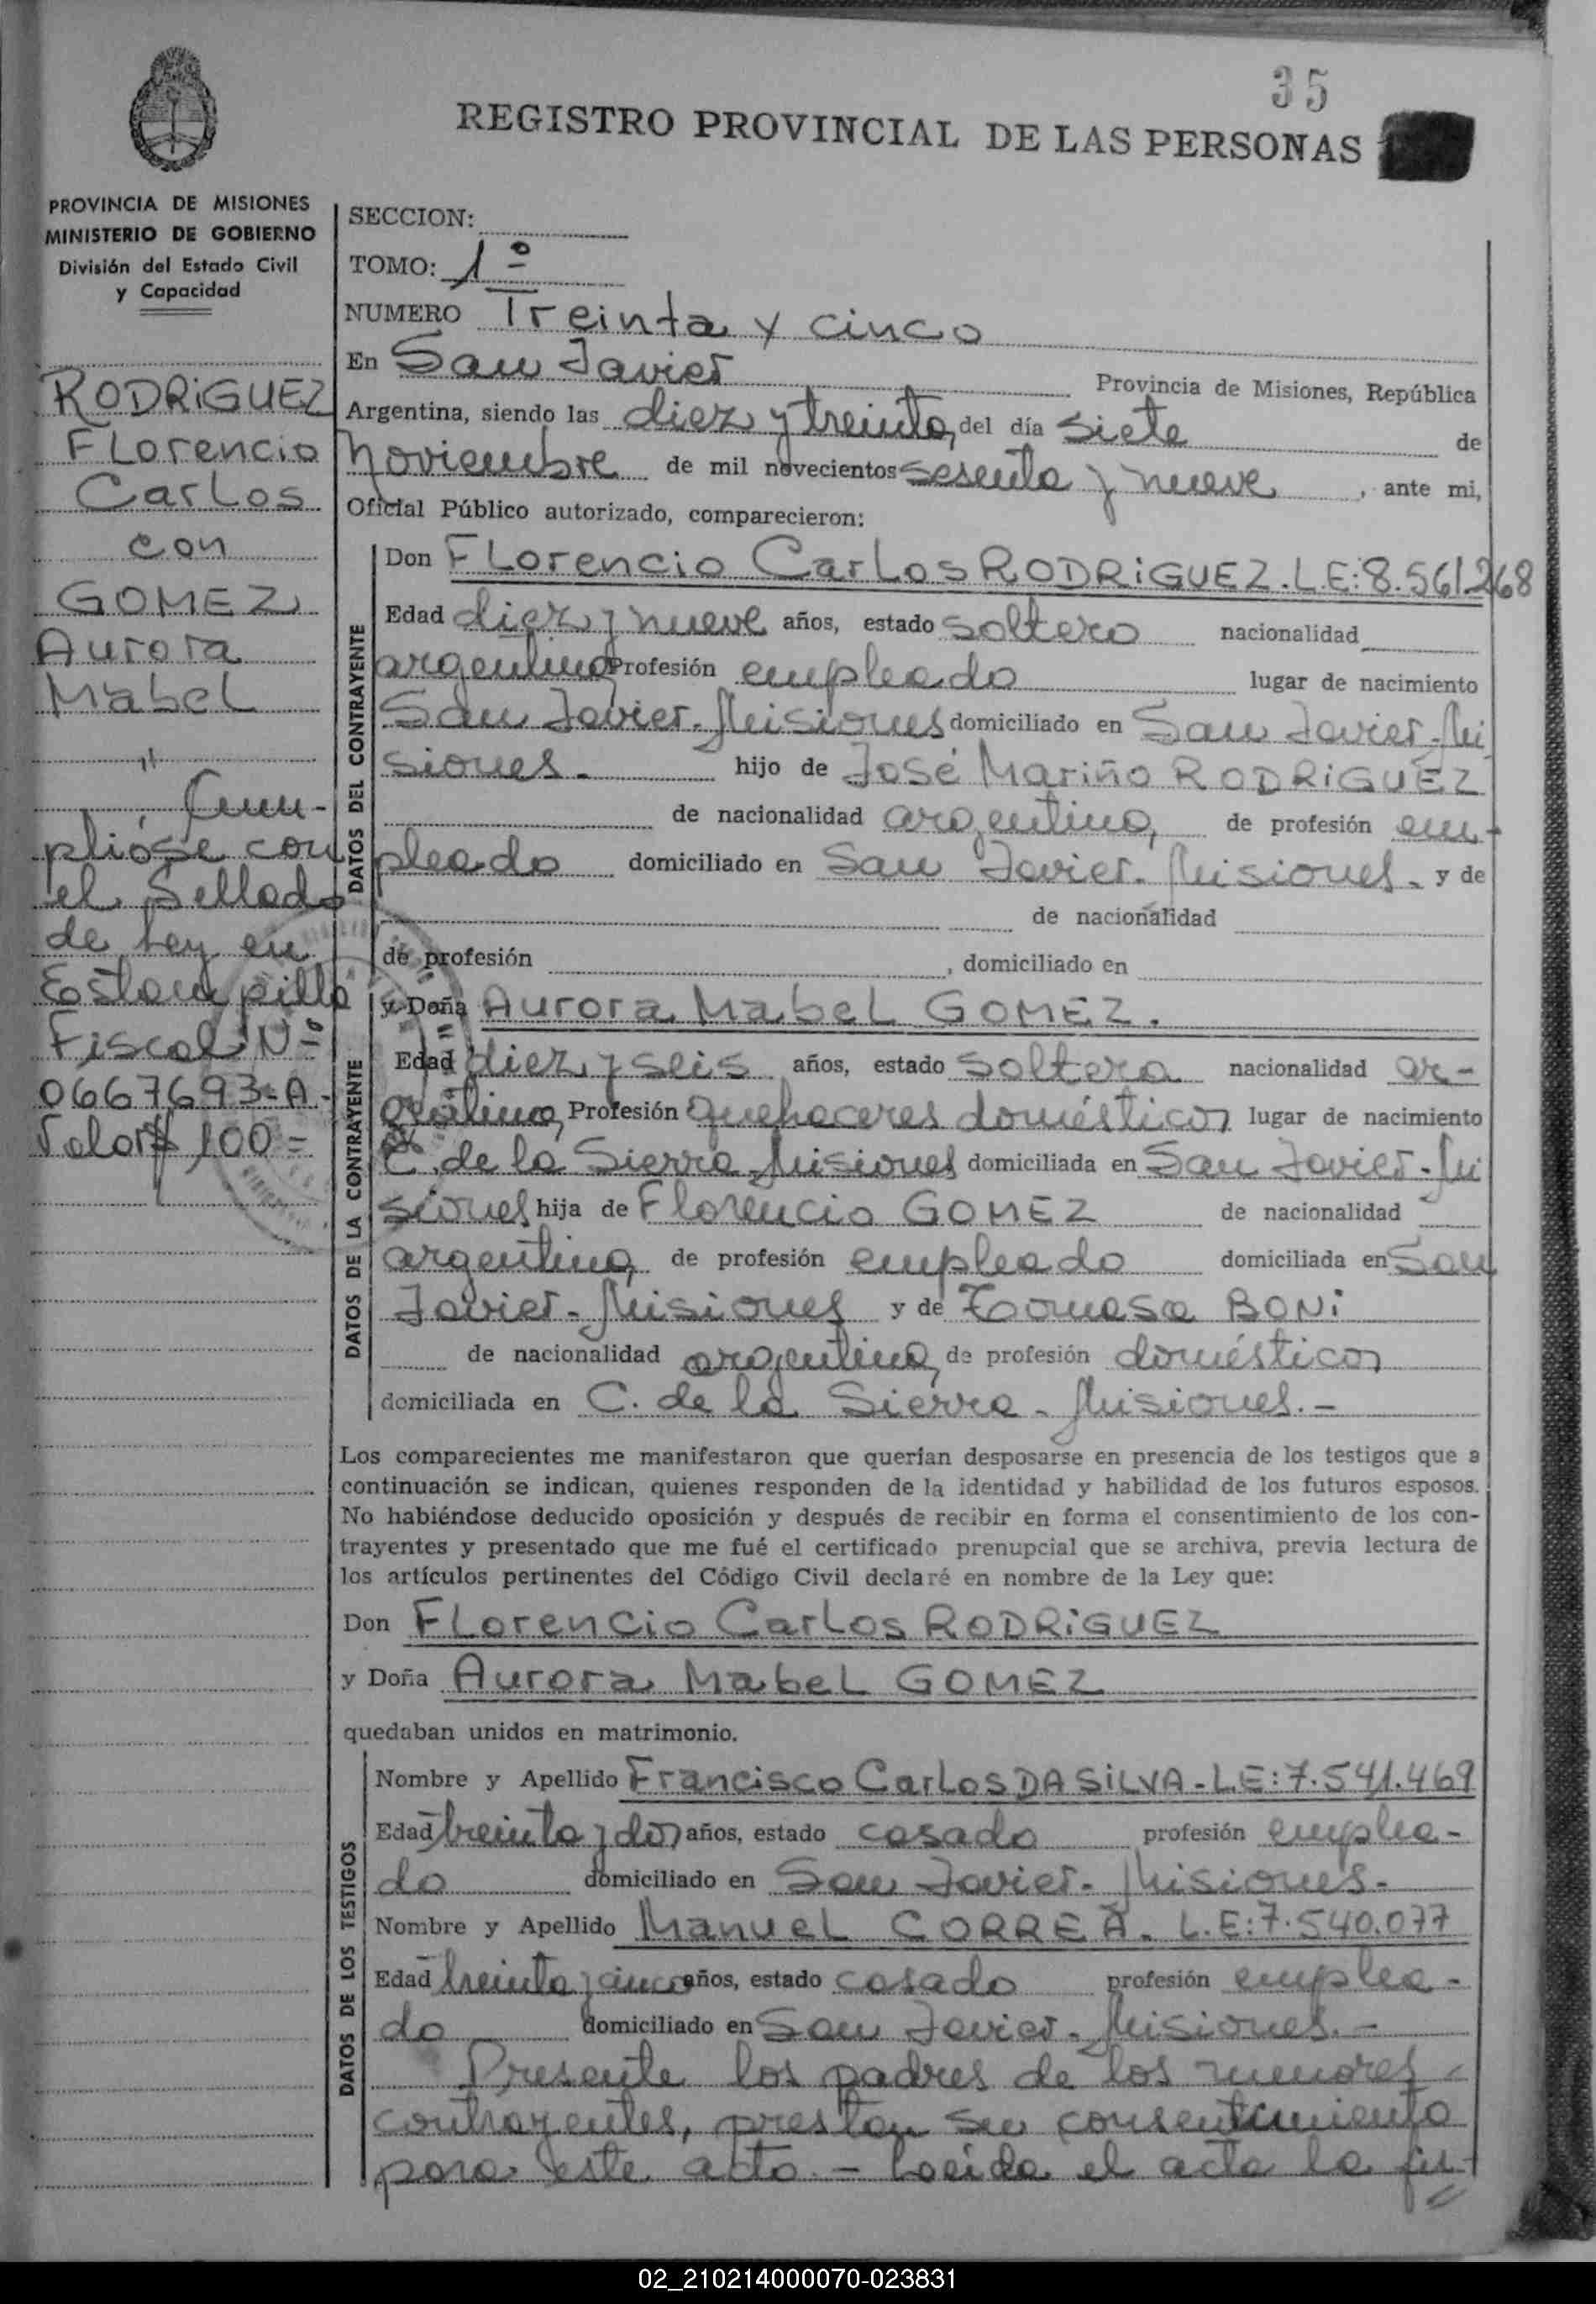 35
REGISTRO PROVINCIAL DE LAS PERSONAS
PROVINCIA DE MISIONES
MINISTERIO DE GOBIERNO
División del Estado Civil
y Capacidad
RODRiGUEZ
FLorencio
CarLos
con
GOMEZ
Aurora
MabeL
"
Cum-
plióse con
el Sellado
de Ley en
Estampilla
Fiscal Nº
0667693-A-
Valor $ 100=
SECCION:
TOMO: 1º
NUMERO Treinta y cinco
En San Javier Provincia de Misiones, República
Argentina, siendo las diez y treinta, del día siete de
noviembre de mil novecientos sesenta y nueve, ante mi,
Oficial Público autorizado, comparecieron:
DATOS DEL CONTRAYENTE
Don FLorencio CarLos RODRiGUEZ. L.E: 8.561268
Edad diez y nueve años, estado soltero nacionalidad
argentina Profesión empleado lugar de nacimiento
San Javier. Misiones domiciliado en San Javier. Mi
siones. hijo de José Mariño RODRiGUEZ
de nacionalidad argentina, de profesión em-
pleado domiciliado en San Javier. Misiones. y de
de nacionalidad
de profesión , domiciliado en
DATOS DE LA CONTRAYENTE
y Doña Aurora MabeL GOMEZ.
Edad diez y seis años, estado soltera nacionalidad ar-
gentina, Profesión quehaceres domésticos lugar de nacimiento
C. de la Sierra Misiones domiciliada en San Javier. Mi
siones hija de Florencio GOMEZ de nacionalidad
argentina, de profesión empleado domiciliada en San
Javier. Misiones y de Tomasa BONi
de nacionalidad argentina, de profesión domésticos
domiciliada en C. de la Sierra. Misiones. -
Los comparecientes me manifestaron que querían desposarse en presencia de los testigos que a
continuación se indican, quienes responden de la identidad y habilidad de los futuros esposos.
No habiéndose deducido oposición y después de recibir en forma el consentimiento de los con-
trayentes y presentado que me fué el certificado prenupcial que se archiva, previa lectura de
los artículos pertinentes del Código Civil declaré en nombre de la Ley que:
Don FLorencio CarLos RODRiGUEZ
y Doña Aurora MabeL GOMEZ
quedaban unidos en matrimonio.
DATOS DE LOS TESTIGOS
Nombre y Apellido Francisco CarLos DA SiLVA - L.E: 7.541.469
Edad treinta y dos años, estado casado profesión emplea-
do domiciliado en San Javier. Misiones.
Nombre y Apellido ManueL CORREA. L.E: 7.540.077
Edad treinta y cinco años, estado casado profesión emplea-
do domiciliado en San Javier. Misiones. -
Presente los padres de los menores
contrayentes, prestan su consentimiento
para este acto. - Leída el acta la fir-
02_210214000070-023831